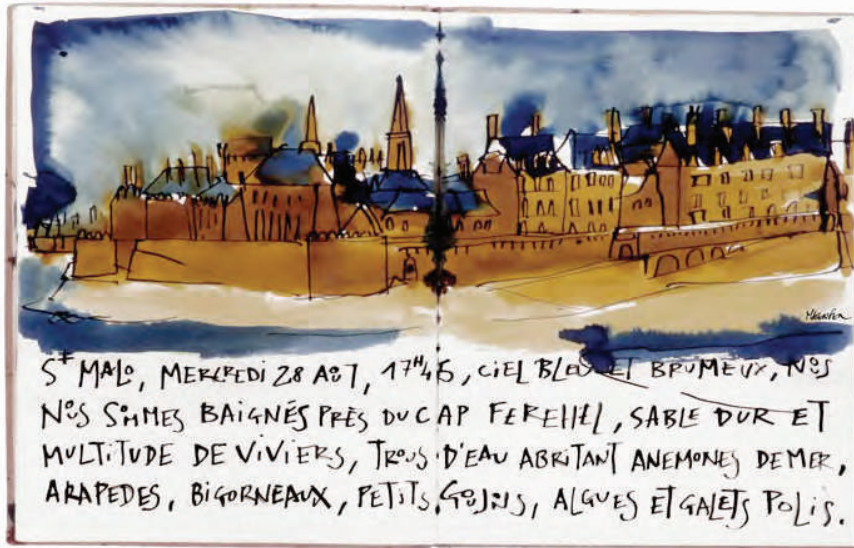 St MALO, MERCREDI 28 AOUT, 17H45, CIEL BLEU ET BRUMEUX, NOUS
NOUS SOMMES BAIGNÉS PRÈS DU CAP FEREHEL, SABLE DUR ET
MULTITUDE DE VIVIERS, TROUS D'EAU ABRITANT ANEMONES DE MER,
ARAPEDES, BIGORNEAUX, PETITS GOUJONS, ALGUES ET GALETS POLIS.